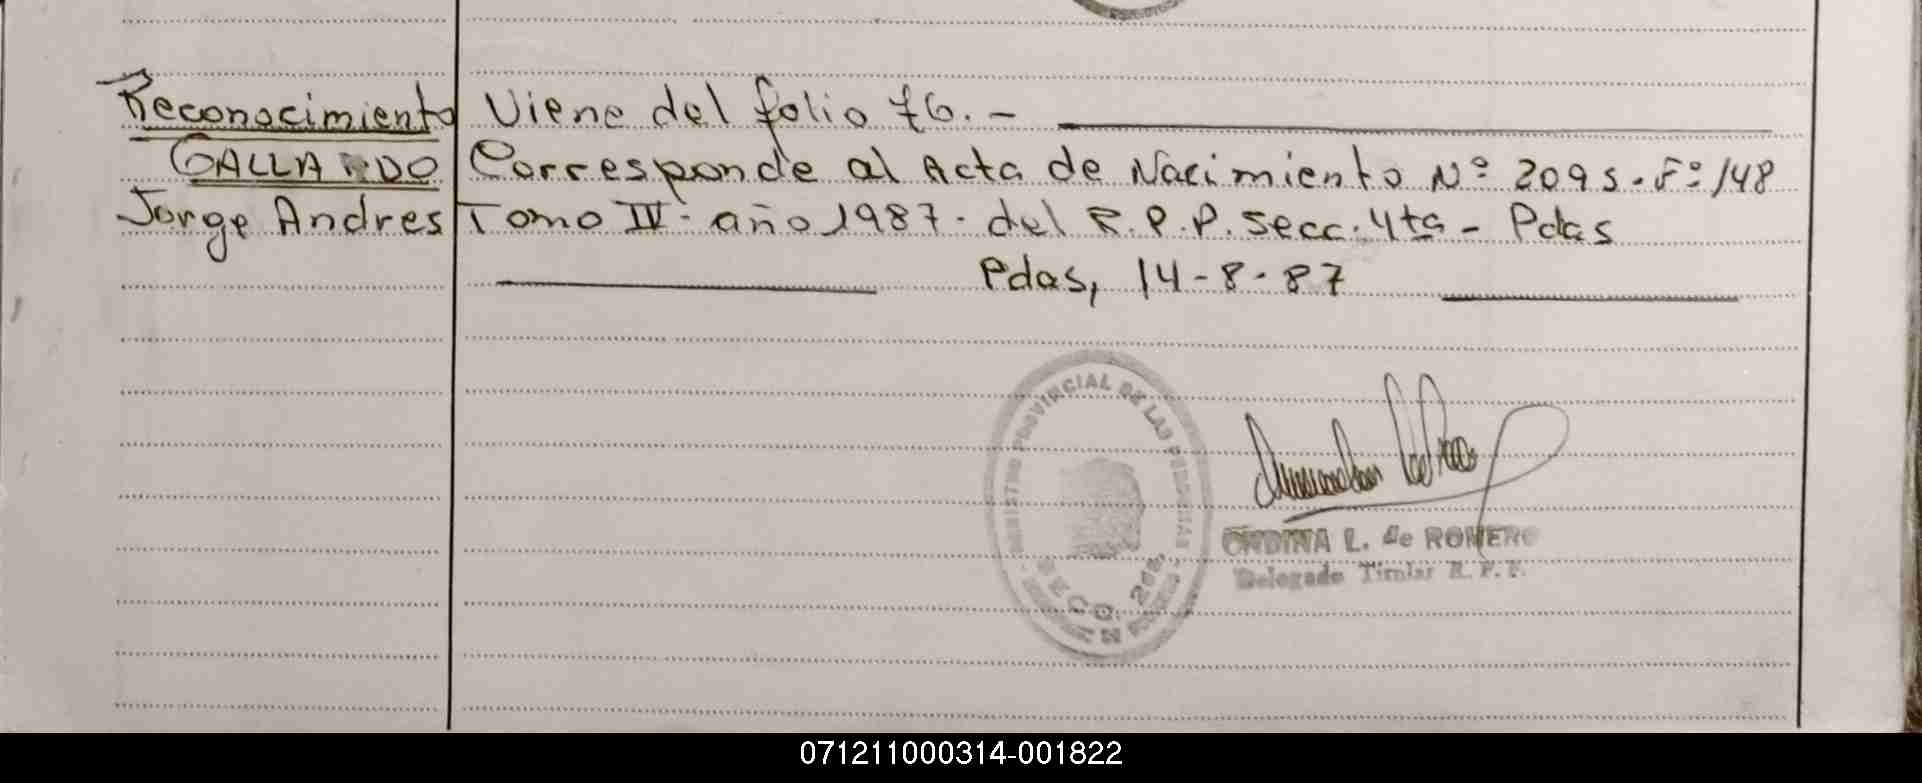 Reconocimiento Viene del folio 76.-
GALLARDO Corresponde al Acta de Nacimiento Nº 209 s. Fº 148
Jorge Andres Tomo IV - año 1987 - del R.P.P. Secc. 4ta - Pdas
Pdas, 14-8-87
REGISTRO PROVINCIAL DE LAS PERSONAS
SECC. 2da.
ONDINA L. de ROMERO
Delegado Titular R. P. P.
071211000314-001822